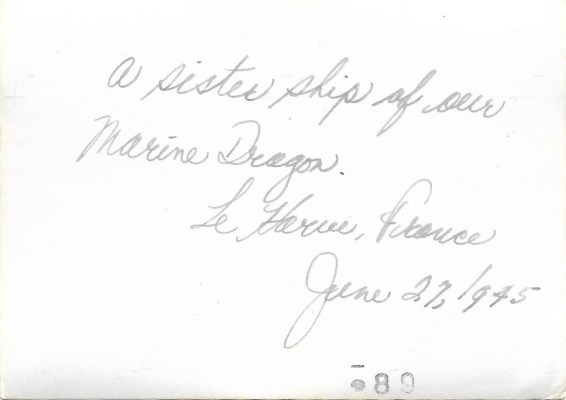 A sister ship of our
Marine Dragon.
Le Harve, France
June 27, 1945
89